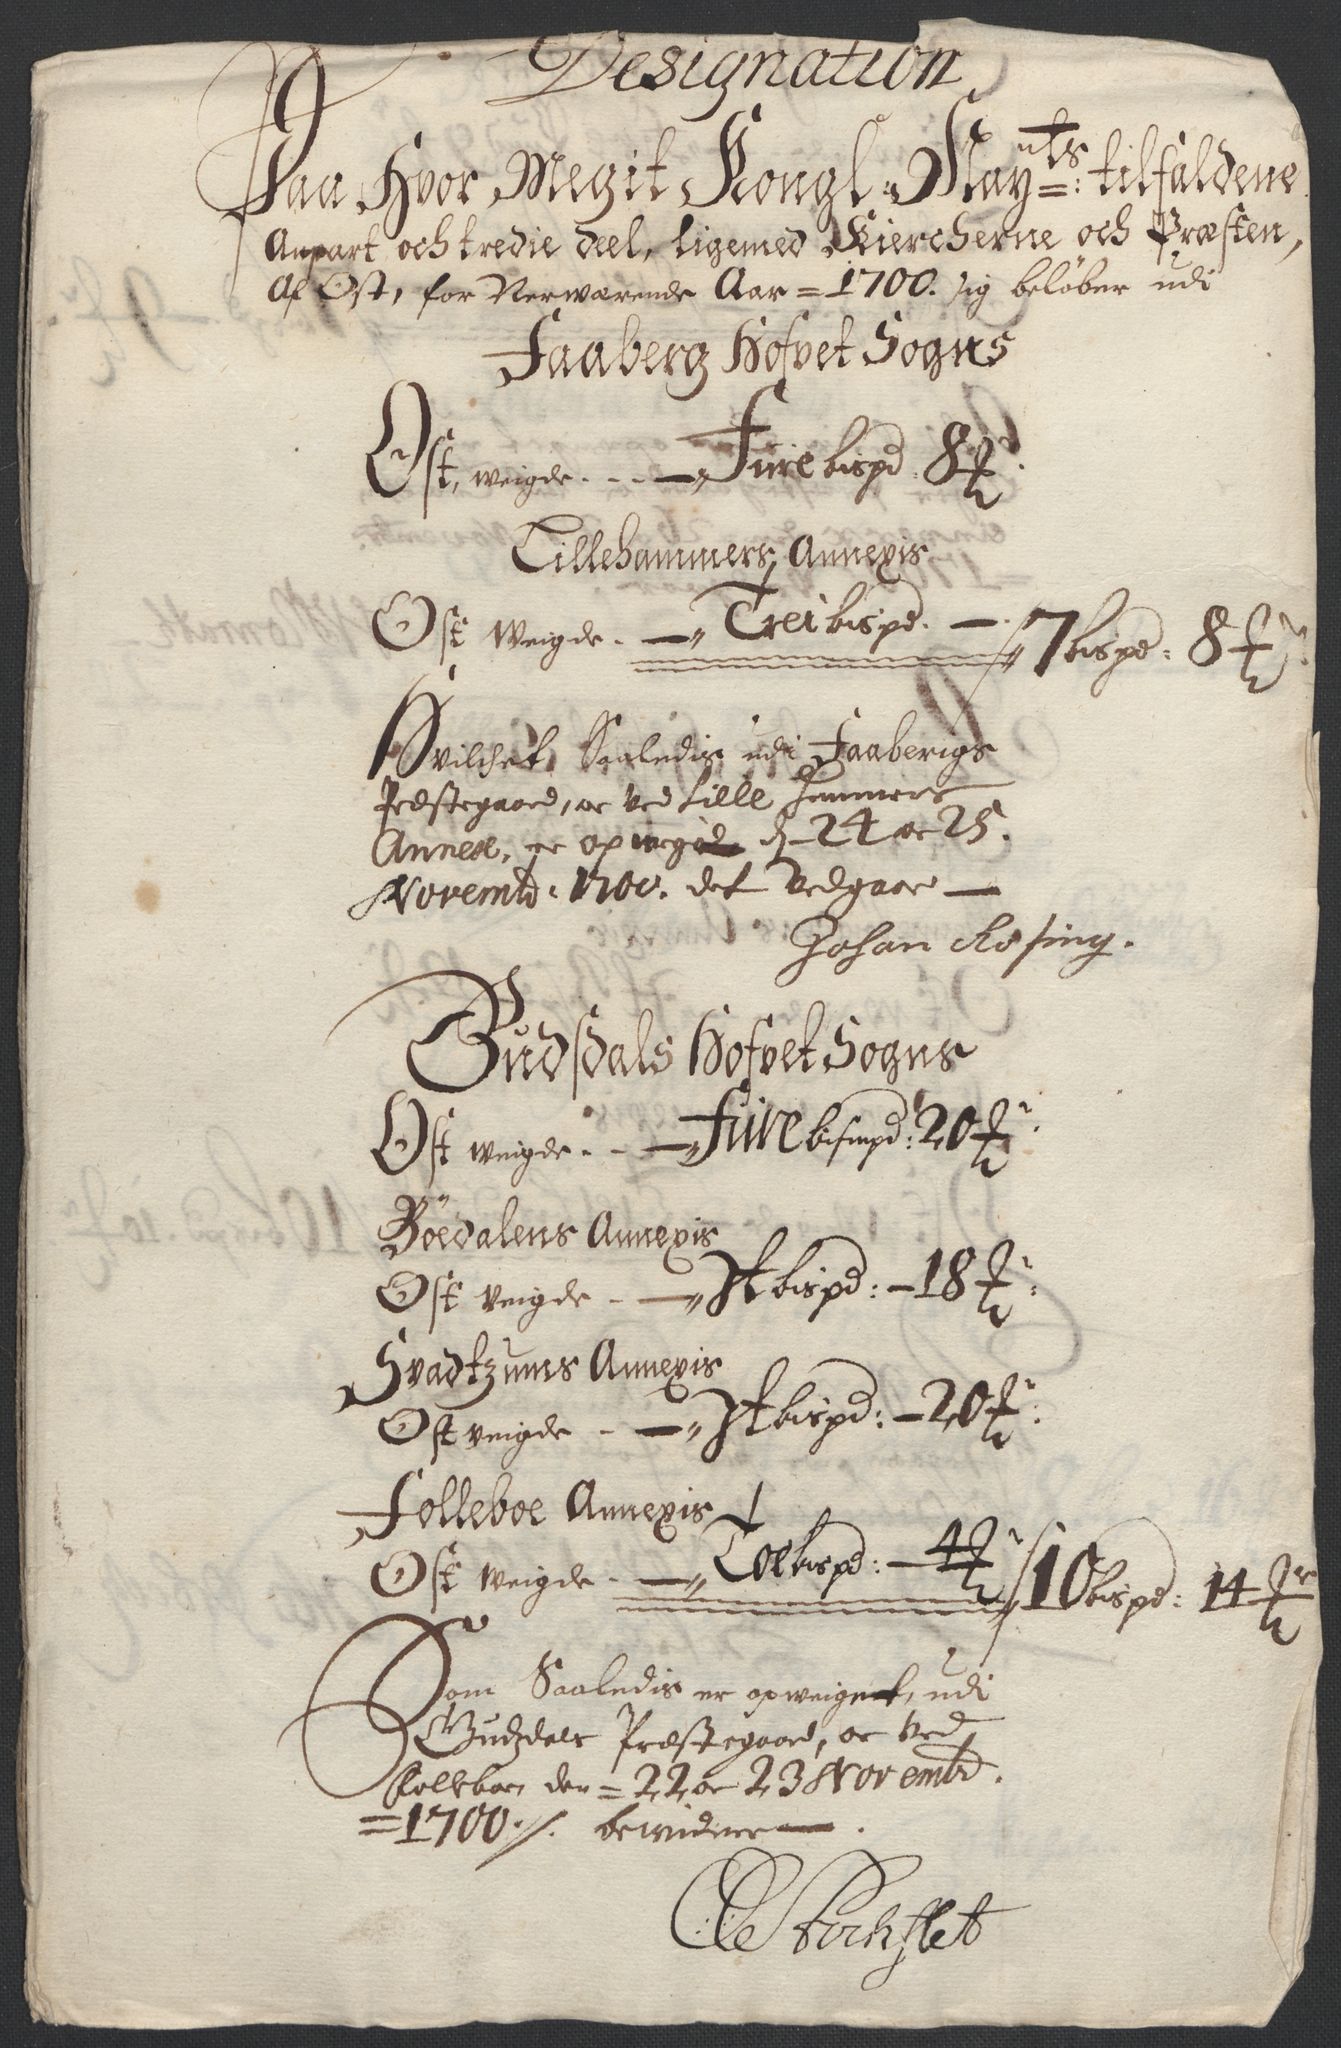 Designation
Paa Hvor Megit Kongl: May:ts tilfaldene
Anpart och tredie deel, ligemed Kiercherne och Præsten,
Af Ost, for Nerwærende Aar = 1700. sig beløber udi
Faaberg Hofvet Sogns
Ost, weigde. - - — Fiire bispd 8 ℔r.
Lillehammers Annexis
Ost weigde. — Trei bispd. — 7 bispd: 8 ℔r.
Hvilchet Saaledis udi Faabergs
Præstegaard, oc ved Lille Hammers
Annex, er opweget d. 24 oc 25.
Novembr: 1700. det Vedgaar —
Johan Rosing.
Gudsdals Hofvet Sogns
Ost weigde. - — Fiire bismpd: 20 ℔r.
Böedalens Annexis
Ost veigde - — It bispd: — 18 ℔r:
Svadtzums Annexis
Ost veigde - — It bispd: — 20 ℔r:
Folleboe Annexis
Ost weigde. — Toe bispd: — 4 ℔r 10 bispd: 14 ℔r
Som Saaledis er opweiget, udi
Gudzdals Præstegaard, oc Ved
Folleboe, den = 22 oc 23 Novembr.
= 1700 ./. bewidner — .
Stockflet